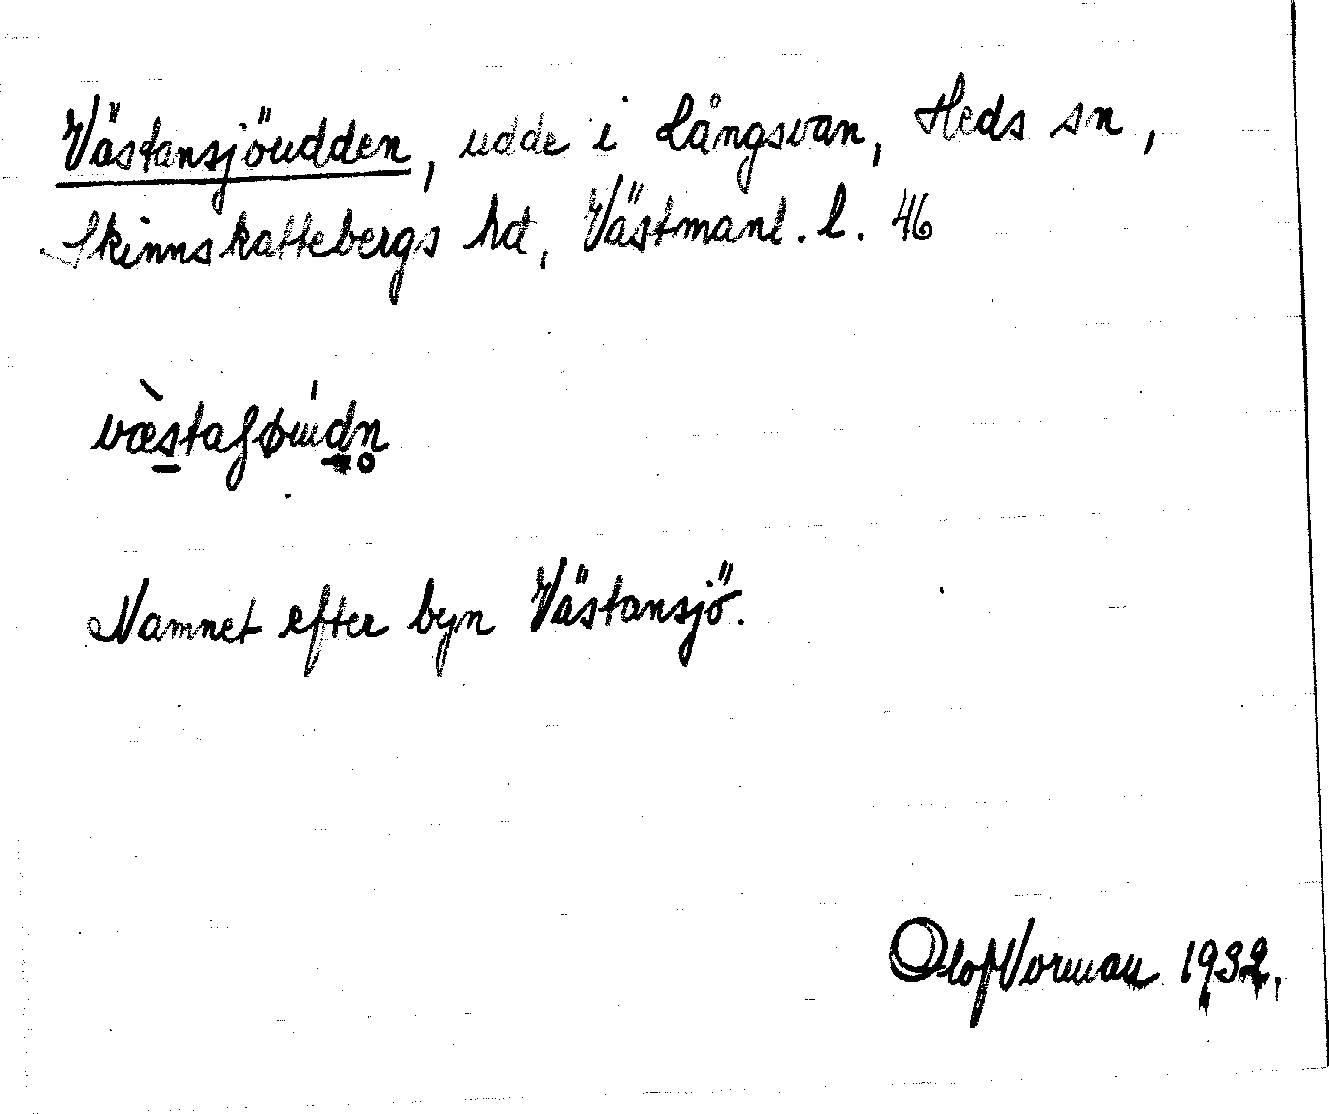 Västansjöudden, udde i Långsvan, Heds sn,
Skinnskattebergs hd, Västmanl. l. 46
Namnet efter byn Västansjö.
Olof Norman 1932.